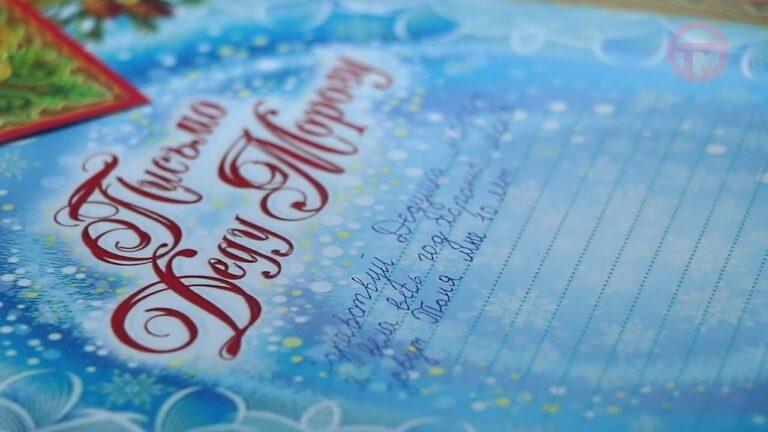 Письмо
Деду Морозу
Здравствуй Дедушка
вела весь год хорошо
зовут Таня мне 10 лет
ТМ